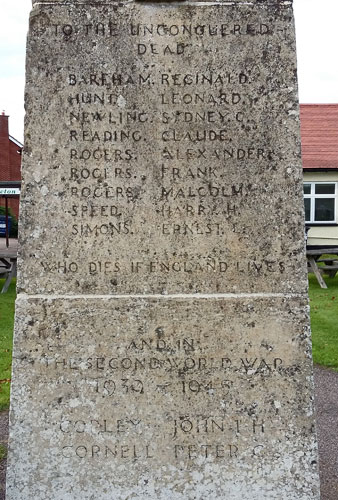 TO THE UNCONQUERED
DEAD
BAREHAM. REGINALD.
HUNT. LEONARD.
NEWLING. SYDNEY. C.
READING. CLAUDE.
ROGERS. ALEXANDER.
ROGERS. FRANK.
ROGERS. MALCOLM.
SPEED. HARRY. H.
SIMONS. ERNEST.
WHO DIES IF ENGLAND LIVES
AND IN
THE SECOND WORLD WAR
1939 - 1945
COPLEY JOHN T H
CORNELL PETER C